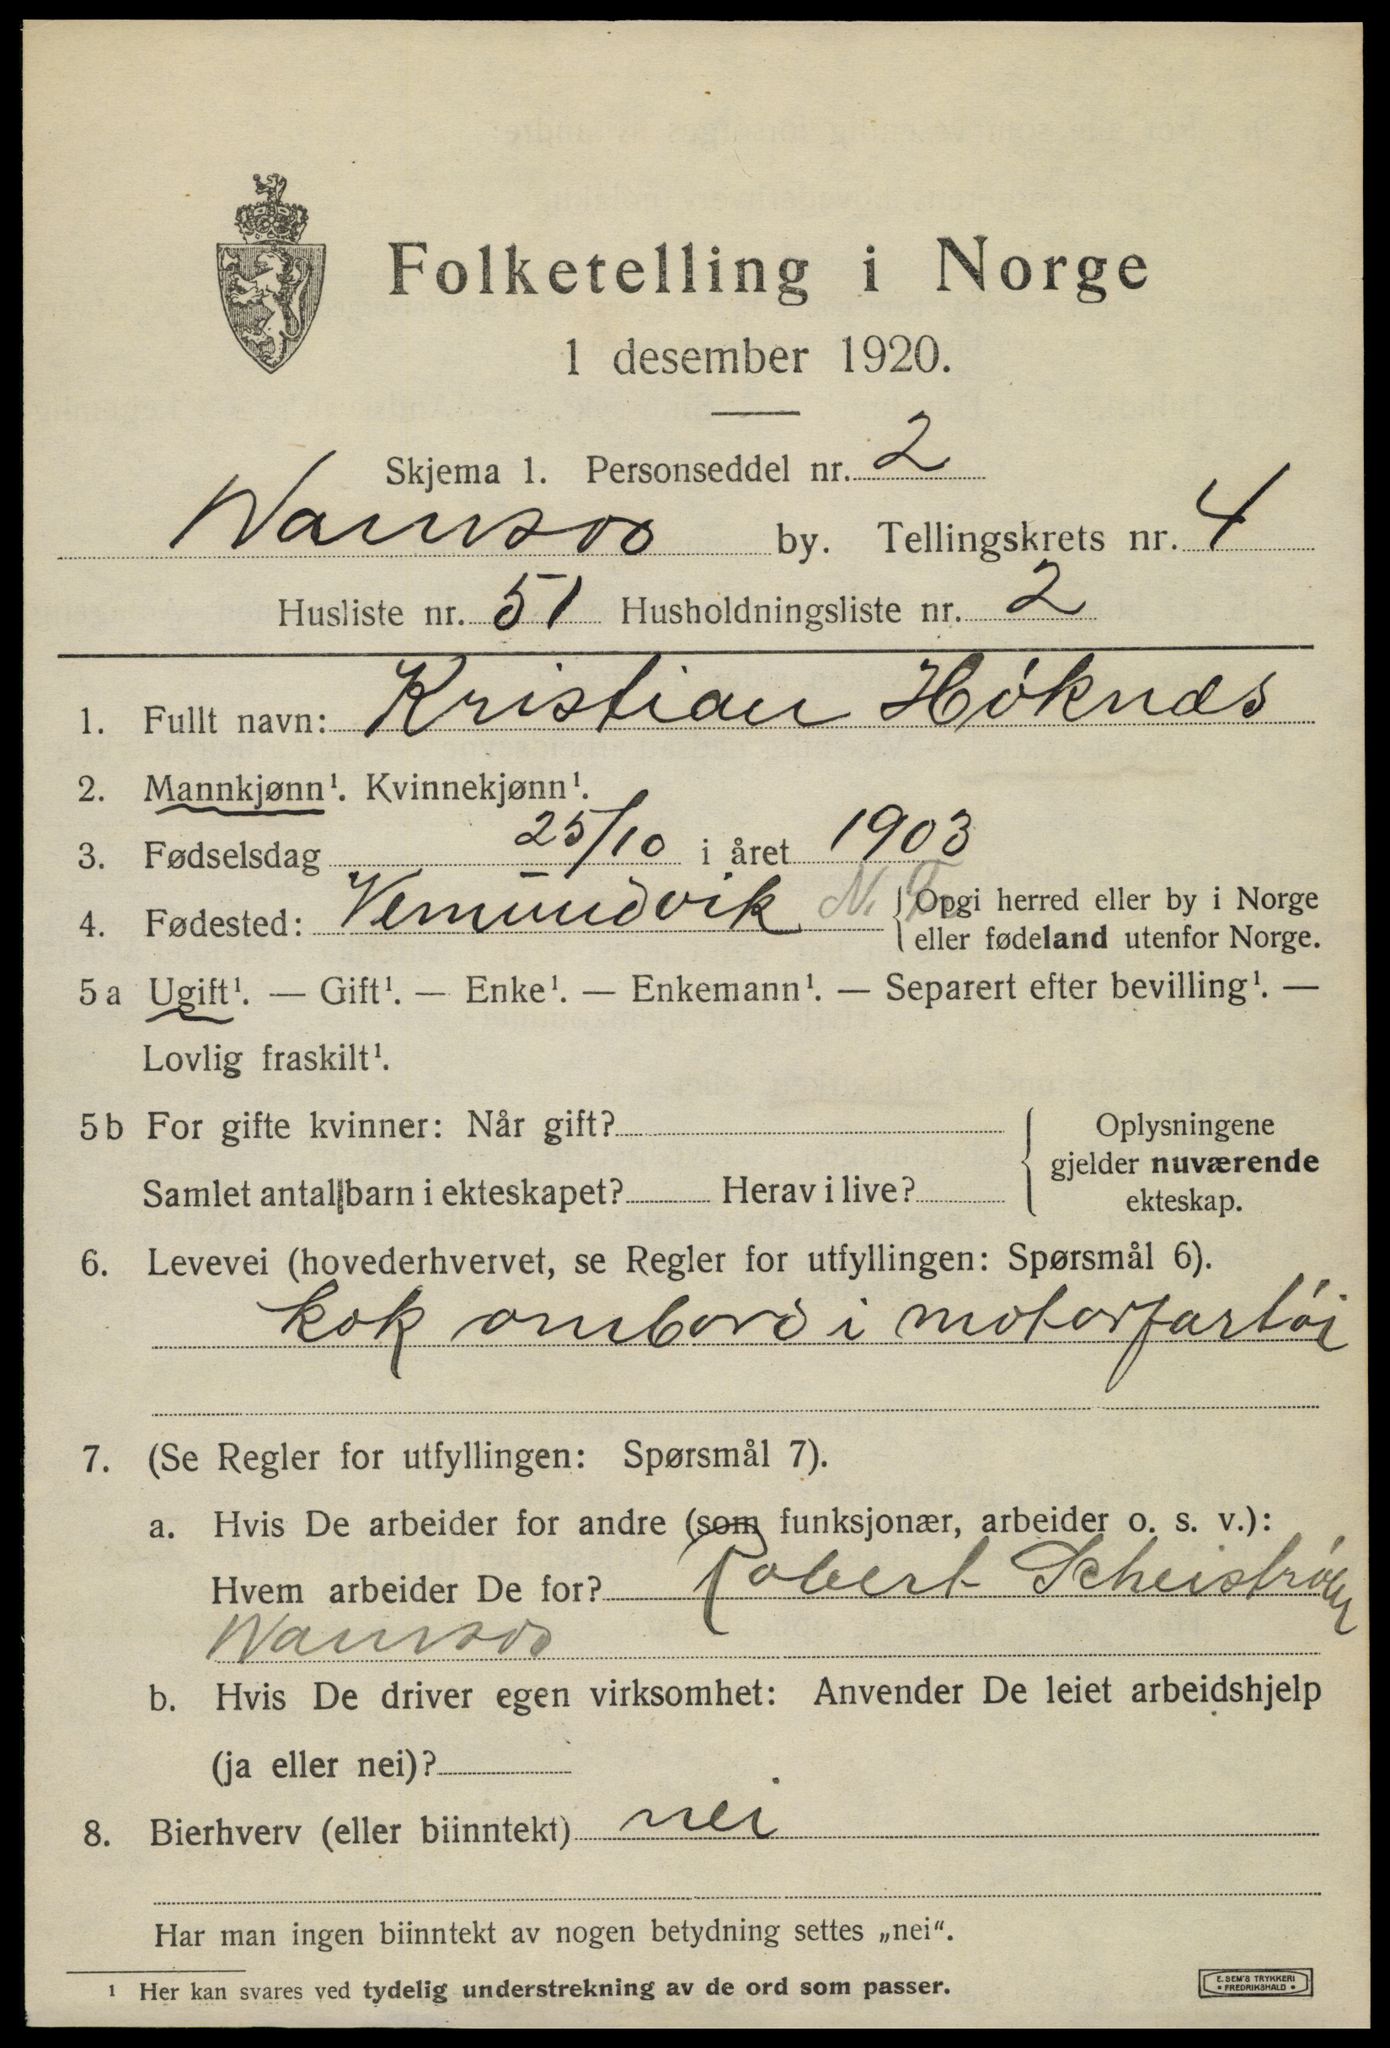 Folketelling i Norge
1 desember 1920.
Skjema 1. Personseddel nr. 2
Namsos by. Tellingskrets nr. 4
Husliste nr. 51 Husholdningsliste nr. 2
1. Fullt navn: Kristian Høknæs
2. Mannkjønn¹. Kvinnekjønn¹.
3. Fødselsdag 25/10 i året 1903
4. Fødested: Vemundvik N. T. Opgi herred eller by i Norge
eller fødeland utenfor Norge.
5a Ugift¹. — Gift¹. — Enke¹. — Enkemann¹. — Separert efter bevilling¹. —
Lovlig fraskilt¹.
5b For gifte kvinner: Når gift?
Samlet antall barn i ekteskapet? Herav i live?
Oplysningene
gjelder nuværende
ekteskap.
6. Levevei (hovederhvervet, se Regler for utfyllingen: Spørsmål 6).
kok ombord i motorfartöi
7. (Se Regler for utfyllingen: Spørsmål 7).
a. Hvis De arbeider for andre (som funksjonær, arbeider o. s. v.):
Hvem arbeider De for? Robert
Namsos
b. Hvis De driver egen virksomhet: Anvender De leiet arbeidshjelp
(ja eller nei)?
8. Bierhverv (eller biinntekt) nei
Har man ingen biinntekt av nogen betydning settes „nei“.
¹ Her kan svares ved tydelig understrekning av de ord som passer.
E. SEM'S TRYKKERI
• FREDRIKSHALD •